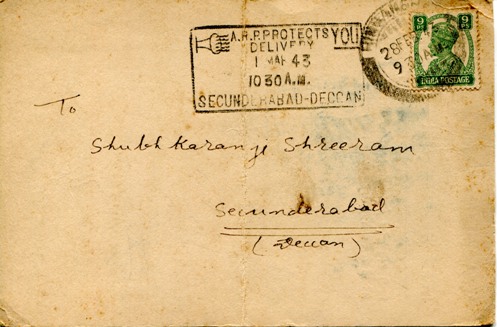 A.R.P. PROTECTS YOU
DELIVERY
1 MAR 43
10 30 A.M.
SECUNDERABAD-DECCAN
28 FEB
9 PS 9 PS
INDIA POSTAGE
To
Shubhkaranji Shreeram
Secunderabad
(Deccan)